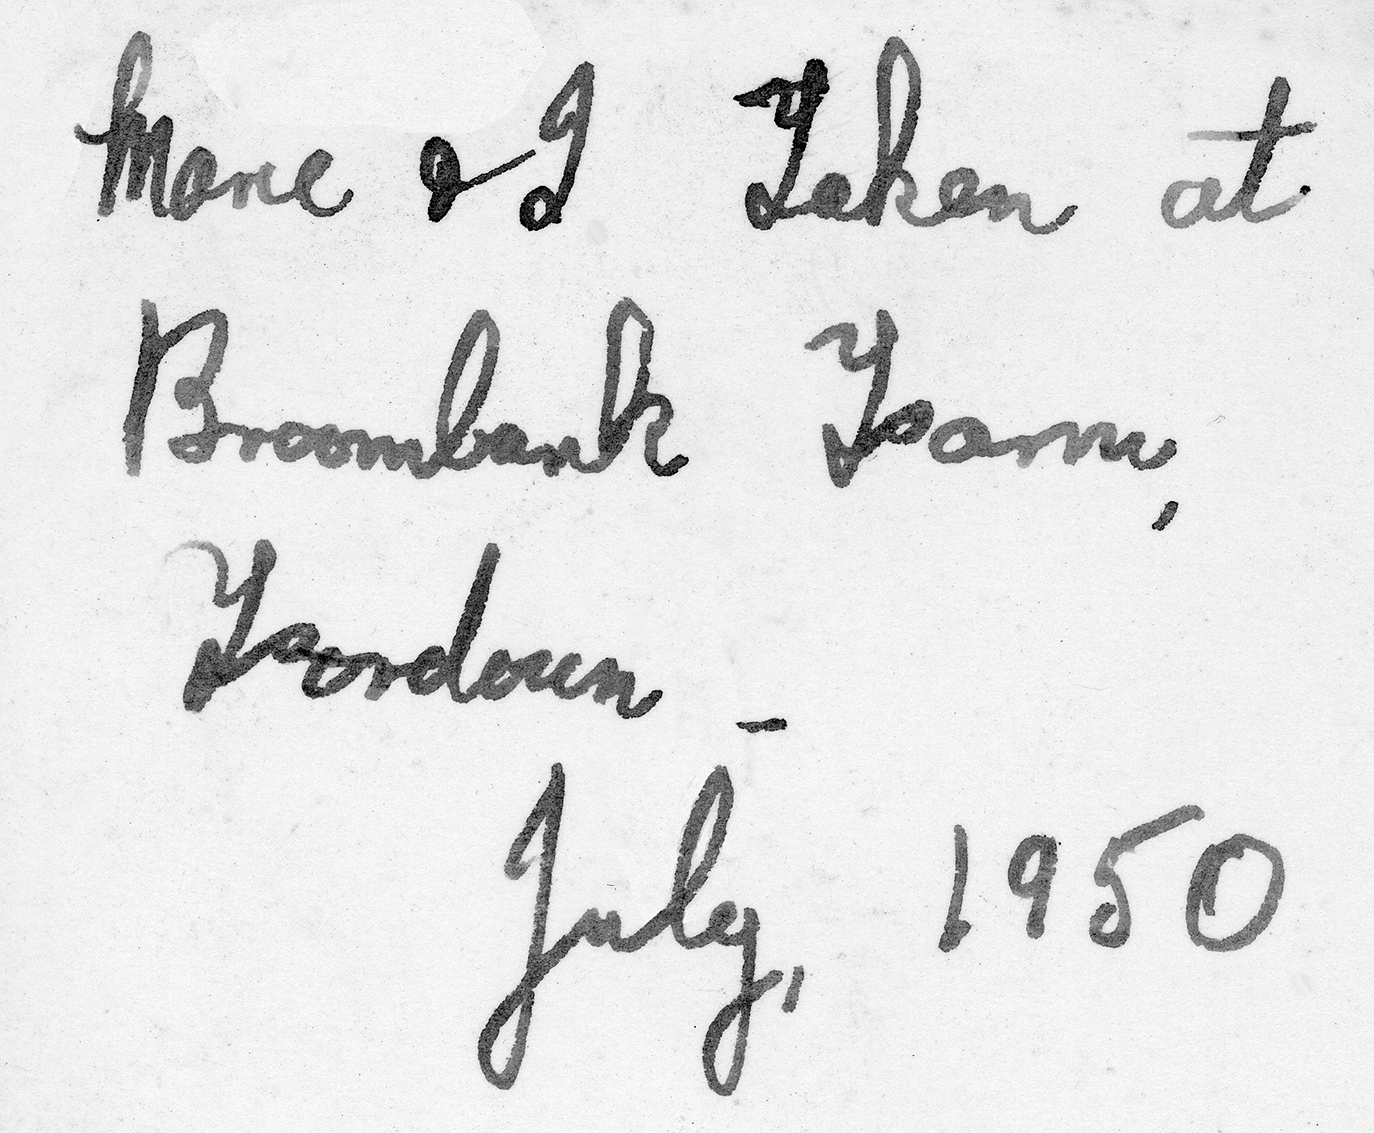 Marie & I Taken at
Broombank Farm,
Fordoun -
July, 1950